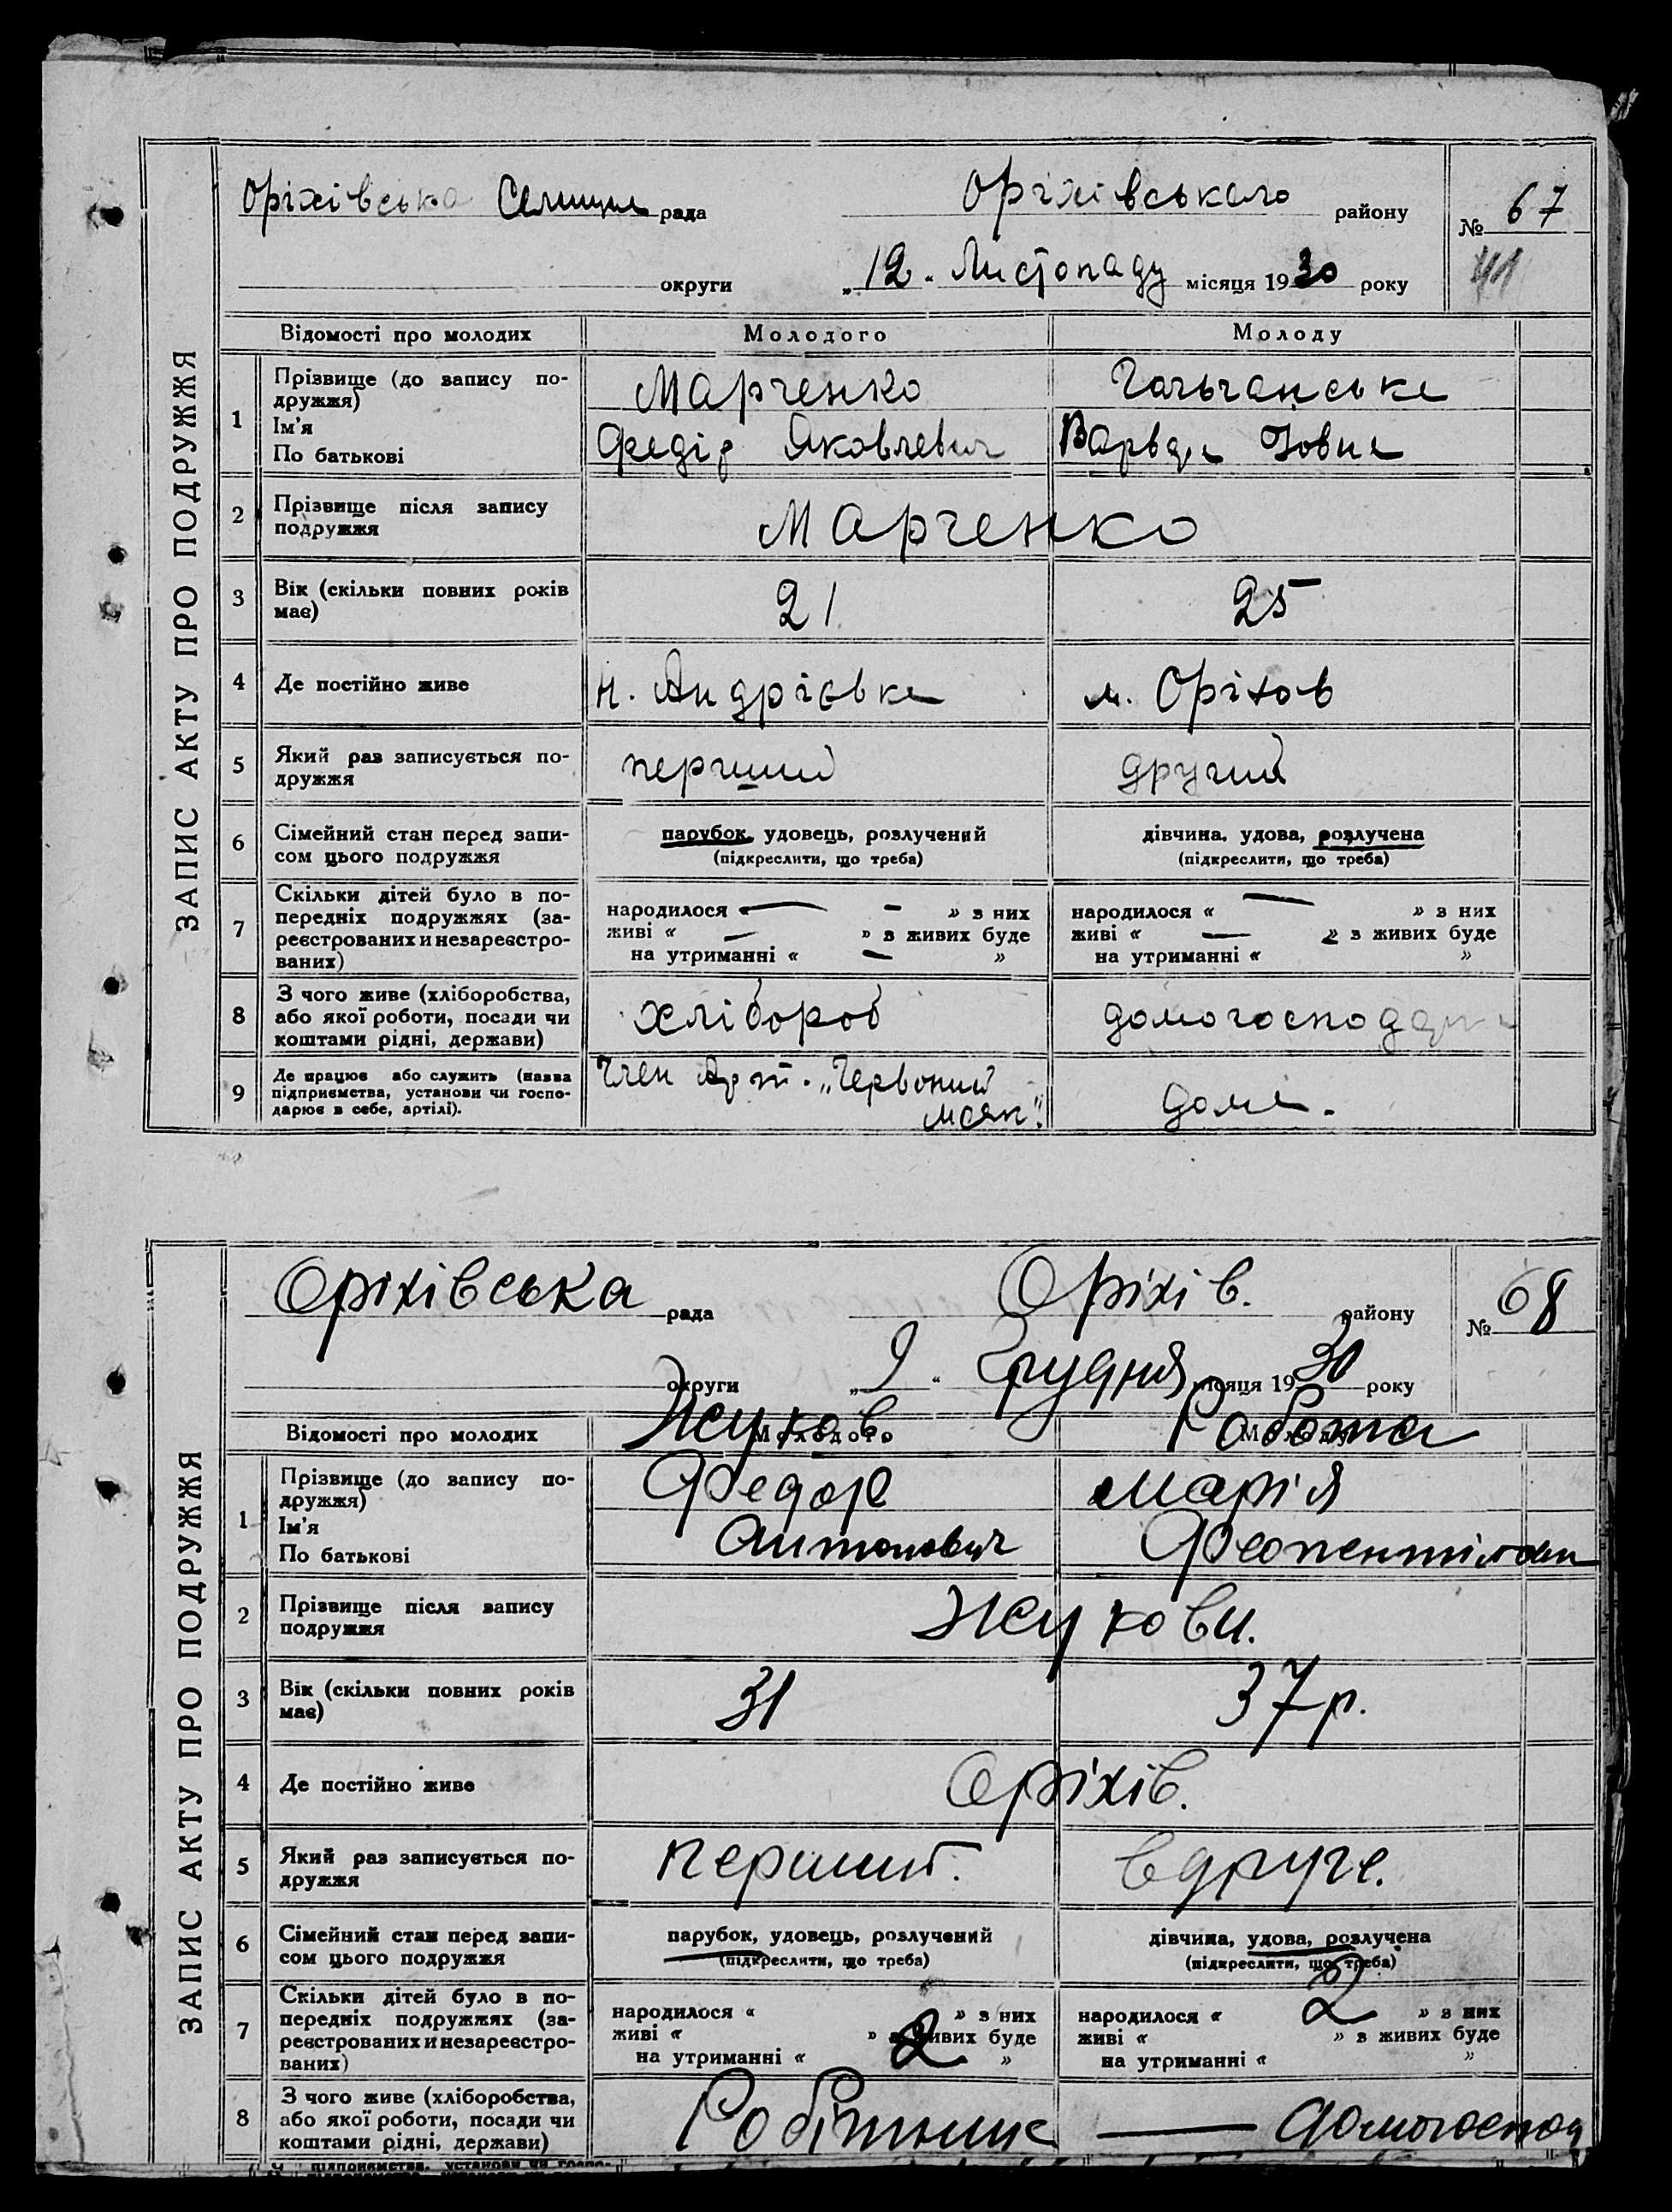 ЗАПИС АКТУ ПРО ПОДРУЖЖЯ
Оріхівська Селищна рада Оріхівського району № 67
округи „12“ Листопаду місяця 1930 року 41
Відомості про молодих Молодого Молоду
1 Прізвище (до запису по-
дружжя)
Ім'я
По батькові
Марченко
Федір Яковлевич
Варвара Іовна
2 Прізвище після запису
подружжя
Марченко
3 Вік (скільки повних років
має)
21 25
4 Де постійно живе Н. Андрієвка м. Оріхов
5 Який раз записується по-
дружжя
перший другий
6 Сімейний стан перед запи-
сом цього подружжя
парубок, удовець, розлучений
(підкреслити, що треба)
дівчина, удова, розлучена
(підкреслити, що треба)
7 Скільки дітей було в по-
передніх подружжях (за-
реєстрованих и незареєстро-
ваних)
народилося « — » з них
живі « — » з живих буде
на утриманні « — »
народилося « — » з них
живі « — » з живих буде
на утриманні « »
8 З чого живе (хліборобства,
або якої роботи, посади чи
коштами рідні, держави)
хлібороб домогосподарка
9 Де працює або служить (назва
підприємства, установи чи госпо-
дарює в себе, артілі).
Член Арт. „Червоний
маяк“. дома.
ЗАПИС АКТУ ПРО ПОДРУЖЖЯ
Оріхівська рада Оріхів. району № 68
округи „9“ Грудня місяця 1930 року
Відомості про молодих Молодого Молоду
Жуков Работа
1 Прізвище (до запису по-
дружжя)
Ім'я
По батькові
Федор Марія
Антонович
2 Прізвище після запису
подружжя
Жукови.
3 Вік (скільки повних років
має)
31 37 р.
4 Де постійно живе Оріхів.
5 Який раз записується по-
дружжя
перший. вдруге.
6 Сімейний стан перед запи-
сом цього подружжя
парубок, удовець, розлучений
(підкреслити, що треба)
дівчина, удова, розлучена
(підкреслити, що треба)
7 Скільки дітей було в по-
передніх подружжях (за-
реєстрованих и незареєстро-
ваних)
народилося « » з них
живі « » з живих буде
на утриманні « 2 »
народилося « 2 » з них
живі « » з живих буде
на утриманні « »
8 З чого живе (хліборобства,
або якої роботи, посади чи
коштами рідні, держави)
Робітник — домогоспод
підприємства, установи чи госпо-